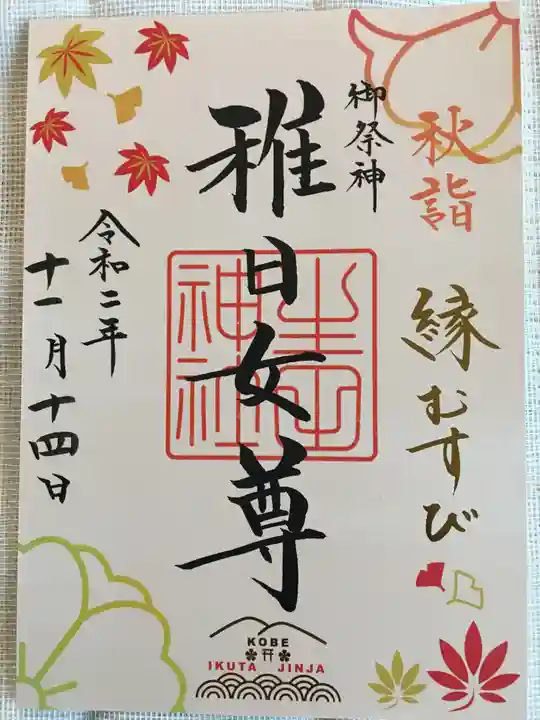 秋詣
縁むすび
御祭神
稚日女尊
生田
神社
令和二年
十一月十四日
KOBE
IKUTA JINJA